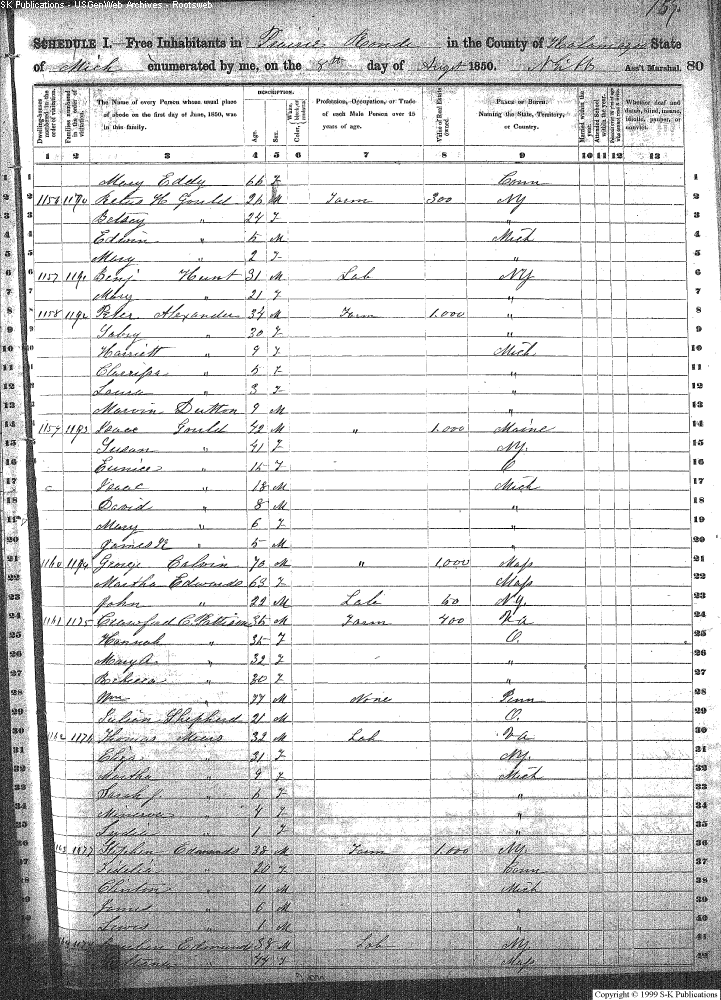 SK Publications - USGenWeb Archives - Rootsweb
157.
SCHEDULE I.—Free Inhabitants in Prairie Ronde in the County of Kalamazoo State
of Mich enumerated by me, on the 8th day of Sept 1850. Ass't Marshal. 80
Dwelling-houses numbered in the order of visitation.
Families numbered in the order of visitation.
The Name of every Person whose usual place of abode on the first day of June, 1850, was in this family.
DESCRIPTION.
Age.
Sex.
Color, White, black, or mulatto.
Profession, Occupation, or Trade of each Male Person over 15 years of age.
Value of Real Estate owned.
PLACE OF BIRTH. Naming the State, Territory, or Country.
Married within the year.
Attended School within the year.
Whether deaf and dumb, blind, insane, idiotic, pauper, or convict.
1 2 3 4 5 6 7 8 9 10 11 12 13
1 Mary Eddy 66 F Conn 1
2 1156 1190 H Gould 26 M Farm 300 NY 2
3 Betsey " 24 F " 3
4 Edwin " 5 M Mich 4
5 Mary " 2 F " 5
6 1157 1191 Benj Hunt 31 M Lab NY 6
7 Mary " 21 F " 7
8 1158 1192 Peter Alexander 34 M Farm 1.000 " 8
9 " 30 F " 9
10 Harriett " 9 F Mich 10
11 " 5 F " 11
12 Laura " 3 F " 12
13 Marvin Dutton 9 M " 13
14 1159 1193 Isaac Gould 42 M " 1.000 Maine 14
15 Susan " 41 F NY. 15
16 Eunice " 15 F O 16
17 Isaac " 18 M Mich 17
18 David " 8 M " 18
19 Mary " 6 F " 19
20 James " 5 M " 20
21 1160 1194 George Calvin 70 M " 1.000 Mass 21
22 Martha Edwards 63 F Mass 22
23 John " 22 M Lab 50 N.Y. 23
24 1161 1175 Crawford C. Pattison 36 M Farm 400 Va 24
25 Hannah " 35 F O. 25
26 Mary A. " 32 F " 26
27 Rebecca " 30 F " 27
28 Wm " 77 M None Penn 28
29 Julian Shepherd 21 M O. 29
30 1162 1176 Thomas 32 M Lab Va
31 Eliza " 31 F NY.
32 Martha " 9 F Mich
Sarah J. " 6 F "
Minerva " 4 F "
Lydia " 1 F "
1177 Stephen Edwards 38 M Farm 1.000 NY
Fidelia " 20 F Conn
" 11 M Mich
James " 6 M "
Lewis " 1 M "
Edwards 38 M Lab NY
77 F Mass
Copyright © 1999 S-K Publications